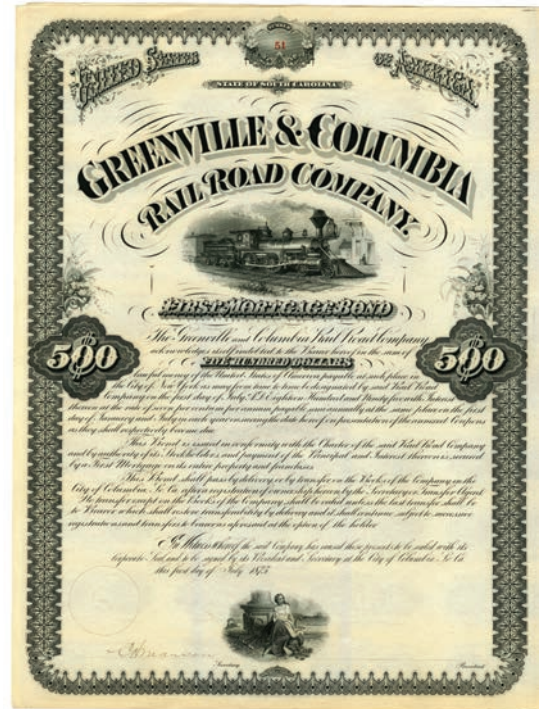 NUMBER
51
UNITED STATES
OF AMERICA
STATE OF SOUTH CAROLINA
GREENVILLE & COLUMBIA
RAIL ROAD COMPANY.
FIRST MORTGAGE BOND
The Greenville and Columbia Rail Road Company
acknowledges itself indebted to the Bearer hereof in the sum of
$500
FIVE HUNDRED DOLLARS
$500
lawful money of the United States of America payable at such place in
the City of New York as may from time to time be designated by said Rail Road
Company on the first day of July A.D. Eighteen Hundred and Ninety five with Interest
thereon at the rate of seven per centum per annum payable semi annually at the same place on the first
day of January and July in each year ensuing the date hereof on presentation of the annexed Coupons
as they shall respectively become due.
This Bond is issued in conformity with the Charter of the said Rail Road Company
and by authority of its Stockholders, and payment of the Principal and Interest thereon is secured
by a First Mortgage on its entire property and franchises.
This Bond shall pass by delivery or by transfer on the Books of the Company in the
City of Columbia, So. Ca. after a registration of ownership hereon by the Secretary or Transfer Agent
No transfer except on the Books of the Company, shall be valid unless the last transfer shall be
to Bearer which shall restore transferability by delivery and it shall continue subject to successive
registrations and transfers to bearer as aforesaid at the option of the holder.
In Witness Whereof the said Company has caused these presents to be sealed with its
Corporate Seal, and to be signed by its President and Secretary at the City of Columbia So. Ca.
this first day of July 1875
Secretary
President